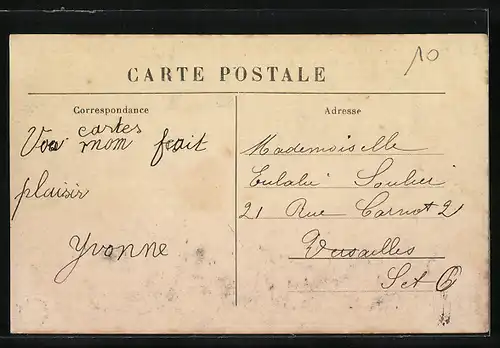 10
CARTE POSTALE
Correspondance
cartes
Vos mom fait
plaisir
Yvonne
Adresse
Mademoiselle
Eulalie Soulier
21 Rue Carnot 21
Versailles
Set O